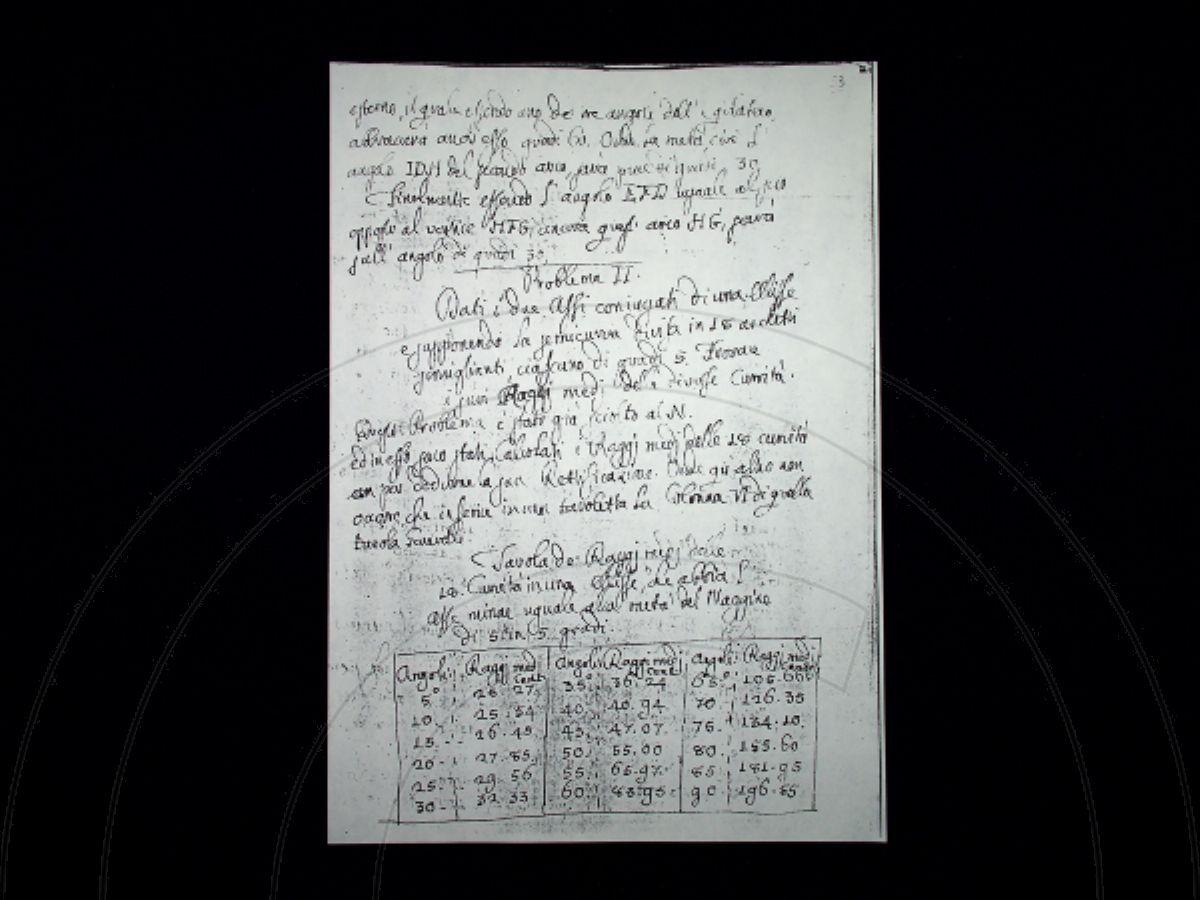 esterno, il quale essendo uno de tre angoli dell'
ancor esso gradi 60. Onde la metà, cioè l'
angolo IDH del secondo arco, sarà 30
Finalmente essendo l'angolo EFD uguale al suo
opposto al vertice HFG, ancora quest' arco HG, sarà
dell' angolo di gradi 30.
Problema II.
Dati i due Assi coniugati di una Elisse
e supponendo la semicurva divisa in 18 archetti
somiglianti, ciascuno di gradi 5. Trovare
i suoi Raggj medj delle diverse Curvità.
Questo Problema è stato già sciolto al N.
ed in esso sono stati calcolati i Raggj medj delle 18 curvità
per dedurne la sua Rettificazione. Onde quì altro non
occorre, che inserire in una tavoletta la Colonna VI di quella
tavola
Tavola de Raggj medj delle
18. Curvità in una Elisse, che abbia l'
asse minore uguale alla metà del Maggiore
di 5 in 5 gradi.
Angoli Raggj medj Cent. Angoli Raggj medj Cent. Angoli Raggj medj Cent.
5° 25. 27 35° 36. 24 65° 105. 66
10 25. 54 40 40. 94 70 116. 35
15 26. 45 45 47. 07 75 134. 10
20 27. 85 50 55. 00 80 155. 60
25 29. 56 55 65. 97 85 181. 95
30 32. 33 60 83. 95 90 196. 85